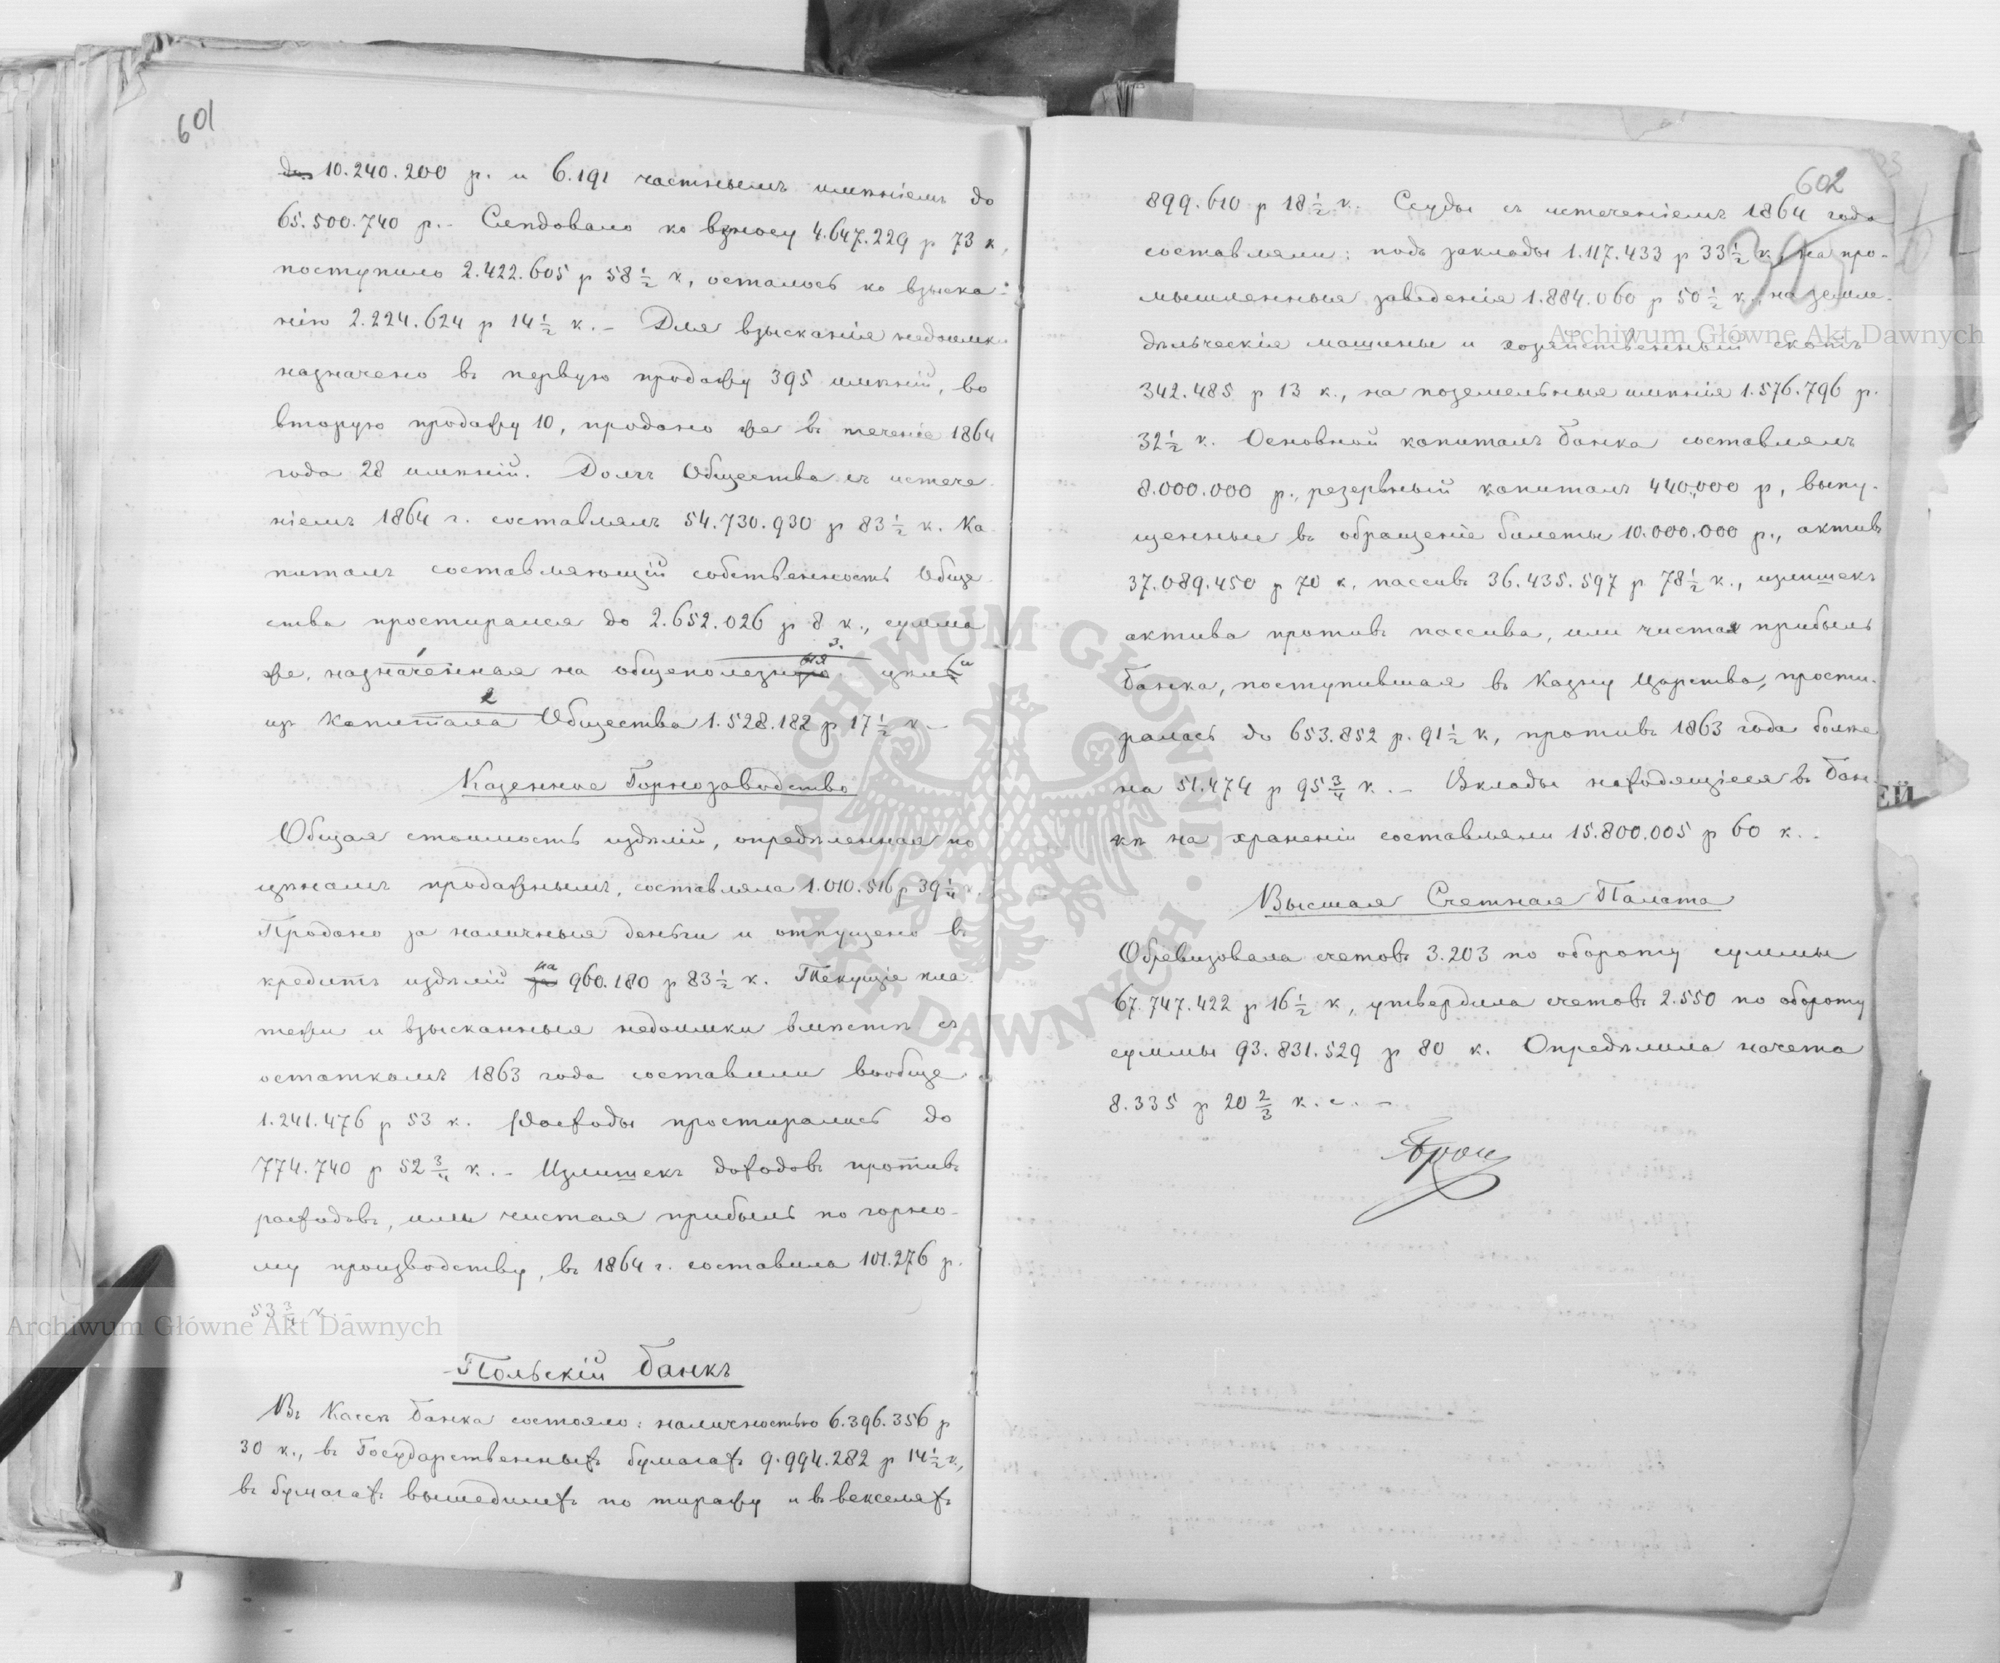 601
до 10.240.200 р. и 6.191 частнымъ имѣніемъ до
65.500.740 р. – Слѣдовало ко взносу 4.647.229 р 73 к,
поступило 2.422.605 р 58 1/2 к, осталось ко взыска-
нію 2.224.624 р 14 1/2 к. – Для взысканія недоимки
назначено въ первую продажу 395 имѣній, во
вторую продажу 10, продано же въ теченіе 1864
года 28 имѣній. Долгъ Общества съ истече
ніемъ 1864 г. составлялъ 54.730.930 р 83 1/2 к. Ка
питалъ составляющій собственность Обще
ства простирался до 2.652.026 р 8 к., сумма
же, назначенная на общеполезныя цѣли
изъ капитала Общества 1.528.182 р 17 1/2 к –
Казенное Горнозаводство
Общая стоимость издѣлій, опредѣленная по
цѣнамъ продажнымъ, составляла 1.010.516 р 39 1/4 к.
Продано за наличныя деньги и отпущено въ
кредитъ издѣлій на 960.180 р 83 1/2 к. Текущіе пла
тежи и взысканныя недоимки вмѣстѣ съ
остаткомъ 1863 года составили вообще
1.241.476 р 53 к. Расходы простирались до
774.740 р 52 3/4 к. – Излишекъ доходовъ противъ
расходовъ, или чистая прибыль по горно-
му производству, въ 1864 г. составила 101.276 р.
53 3/4 к. –
Польскій банкъ
Въ Кассѣ банка состояло: наличностью 6.396.356 р
30 к., въ Государственныхъ бумагахъ 9.994.282 р 14 1/2 к.,
въ бумагахъ вышедшихъ по тиражу и въ векселяхъ
602
899.610 р 18 1/2 к. Ссуды съ истеченіемъ 1864 года
составляли: подъ заклады 1.117.433 р 33 1/2 к, на про-
мышленныя заведенія 1.884.060 р 50 1/2 к., на земле-
дѣльческія машины и хозяйственный скотъ
342.485 р 13 к., на поземельныя имѣнія 1.576.796 р.
32 1/2 к. Основной капиталъ банка составлялъ
8.000.000 р., резервный капиталъ 440.000 р, выпу-
щенные въ обращеніе билеты 10.000.000 р., активъ
37.089.450 р 70 к, пассивъ 36.435.597 р 78 1/2 к., излишекъ
актива противъ пассива, или чистая прибыль
банка, поступившая въ Казну Царства, прости-
ралась до 653.852 р. 91 1/2 к, противъ 1863 года болѣе
на 51.474 р 95 3/4 к. – Вклады находящіеся въ бан-
кѣ на храненіи составляли 15.800.005 р 60 к. .
Высшая Счетная Палата
Обревизовала счетовъ 3.203 по обороту суммы
67.747.422 р 16 1/2 к, утвердила счетовъ 2.550 по обороту
суммы 93.831.529 р 80 к. Опредѣлила начета
8.335 р 20 2/3 к. –
ЕЙ
Archiwum Główne Akt Dawnych
Archiwum Główne Akt Dawnych
ARCHIWUM GŁÓWNE · AKT DAWNYCH ·